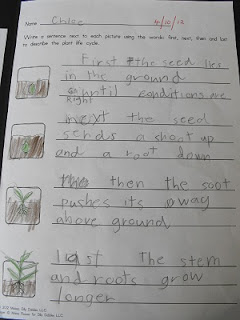 Name Chloe 4/10/12
Write a sentence next to each picture using the words: first, next, then and last
to describe the plant life cycle.
First the seed lies
in the ground
until conditions are
right
next the seed
sends a shoot up
and a root down
then the soot
pushes its way
above ground
last The stem
and roots grow
longer